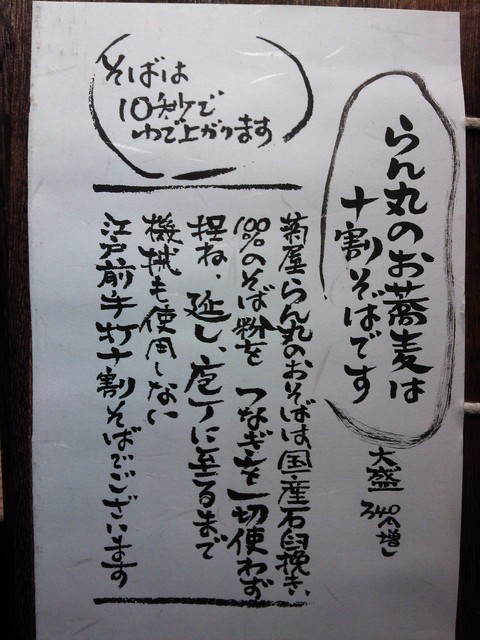 らん丸のお蕎麦は
十割そばです
大盛
340円増し
菊屋らん丸のおそばは国産石臼挽き、
100%のそば粉を つなぎを一切使わず
捏ね、延し、庖丁に至るまで
機械も使用しない
江戸前手打十割そばでございます
そばは
10秒で
ゆで上がります